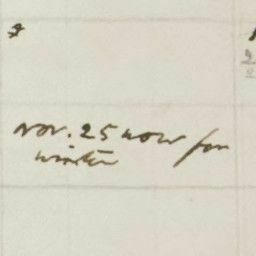 Nov. 25 now for
winter